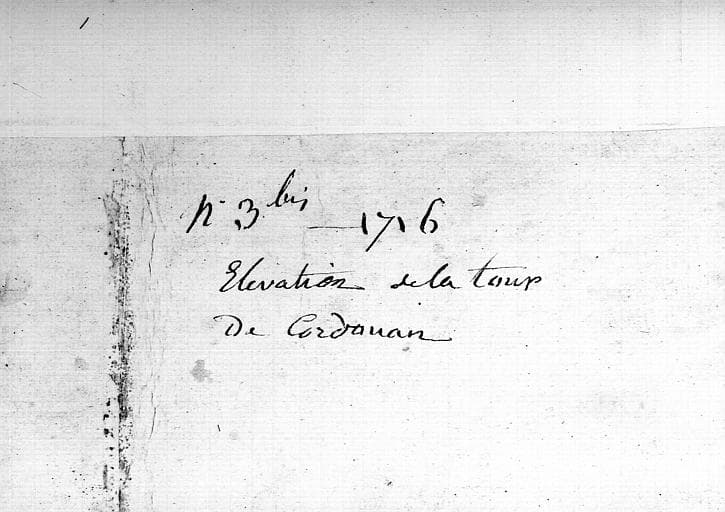 N° 3 bis — 1716
Elevation de la tour
De Cordouan